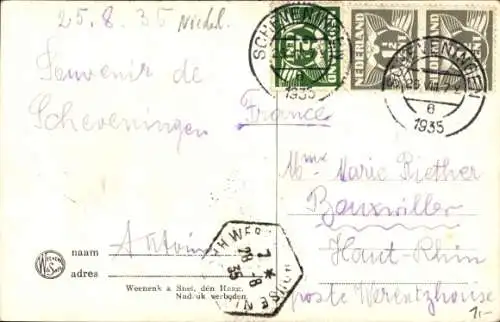 25.8.35 Niedel.
Souvenir de
Scheveningen
Antoine
naam
adres
Weenenk & Snel, den Haag.
Nadruk verboden
NEDERLAND
NEDERLAND
SCHEVENINGEN
1935
SCHEVENINGEN
6
1935
France
Mme Marie Riether
Bouxwiller
Haut-Rhin
poste Werentzhouse
7 * 8
28-8
35
1,-